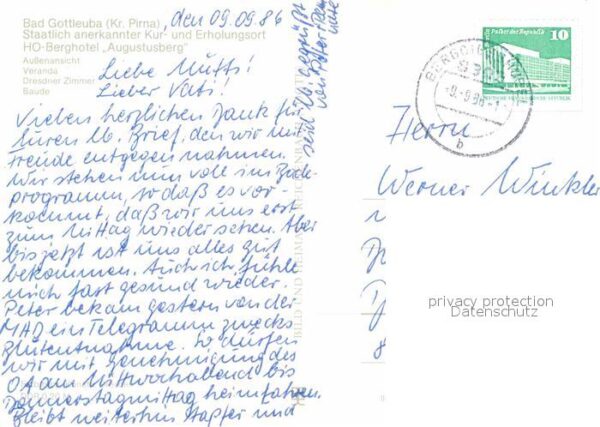 Bad Gottleuba (Kr. Pirna)
Staatlich anerkannter Kur- und Erholungsort
HO-Berghotel „Augustusberg"
Außenansicht
Veranda
Dresdner Zimmer
Baude
, den 09.09.86
Liebe Mutti!
Lieber Vati!
Vielen herzlichen Dank für
Euren lb. Brief, den wir mit
Freude entgegen nahmen.
Wir stehen nun voll im Bade-
programm, so daß es vor-
kommt, daß wir uns erst
zum Mittag wieder sehen. Aber
bis jetzt ist uns alles gut
bekommen. Auch ich fühle
mich fast gesund wieder.
Peter bekam gestern von der
MAD ein Telegramm zwecks
Blutentnahme. So dürfen
wir mit Genehmigung des
OA am Mittwochabend bis
Donnerstagmittag heimfahren.
Bleibt weiterhin tapfer und
seid lb. gegrüßt
von Peter +
BILD UND HEIMAT REICHENBACH
10
Palast der Republik
b
Herrn
Werner Winkler
privacy protection
Datenschutz